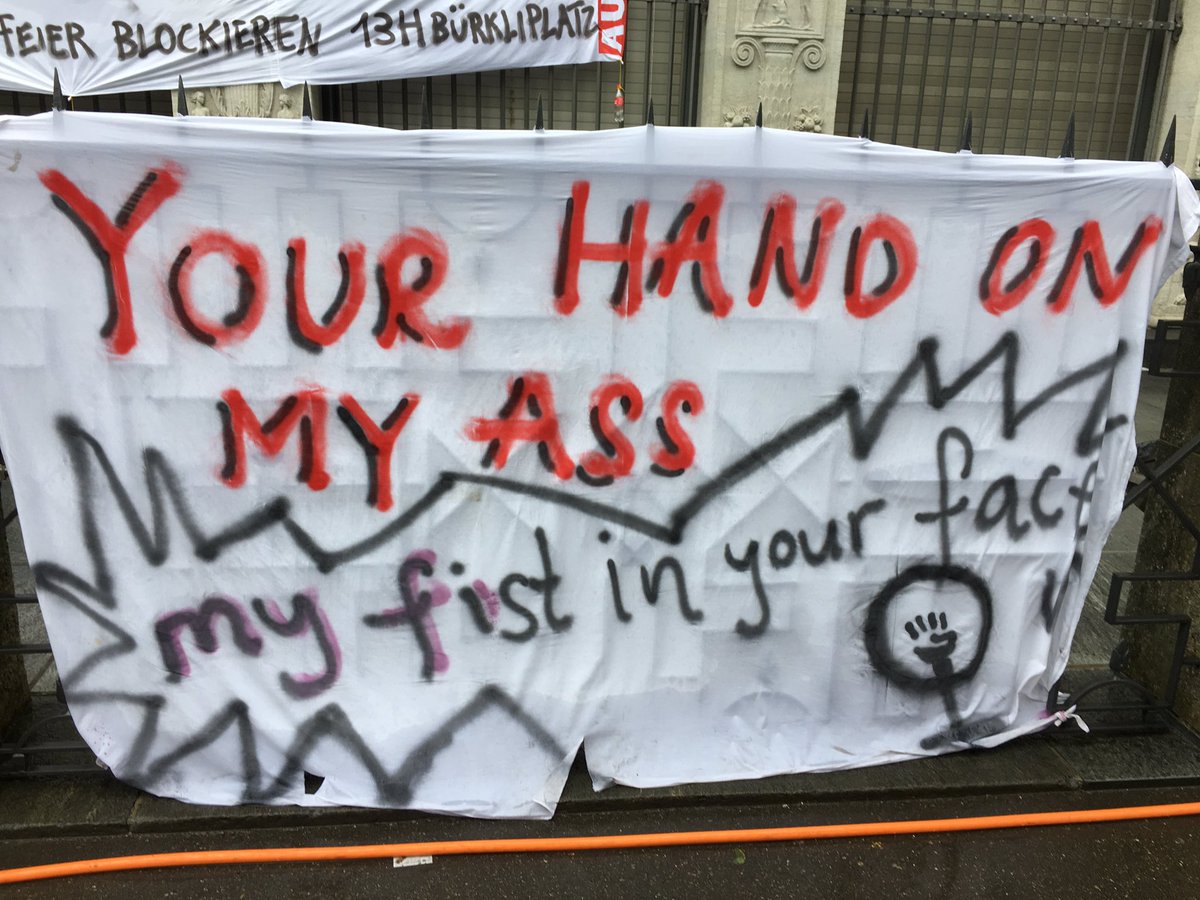 FEIER BLOCKIEREN 13H BÜRKLIPLATZ
AU
YOUR HAND ON
MY ASS
my fist in your face